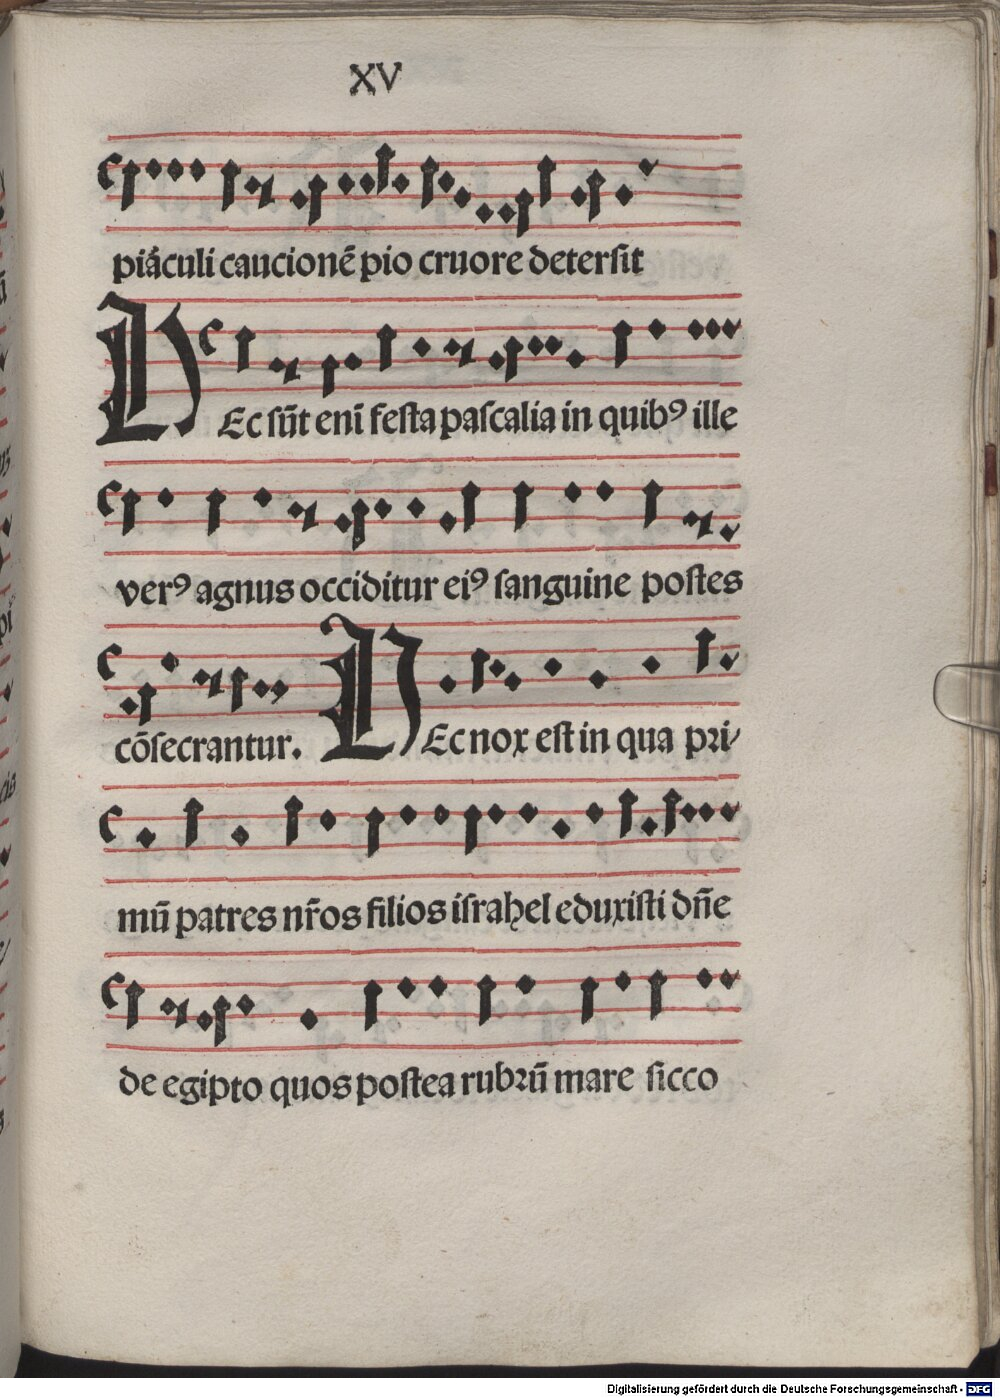 XV
piáculi caucionē pio cruore deterſit
HEc sūt enī feſta paſcalia in quibꝰ ille
verꝰ agnus occiditur eiꝰ ſanguine poſtes
cōſecrantur. HEc nox eſt in qua pri/
mū patres nr̄os filios iſrahel eduxiſti dn̄e
de egipto quos poſtea rubꝛū mare ſicco
Digitalisierung gefördert durch die Deutsche Forschungsgemeinschaft - DFG